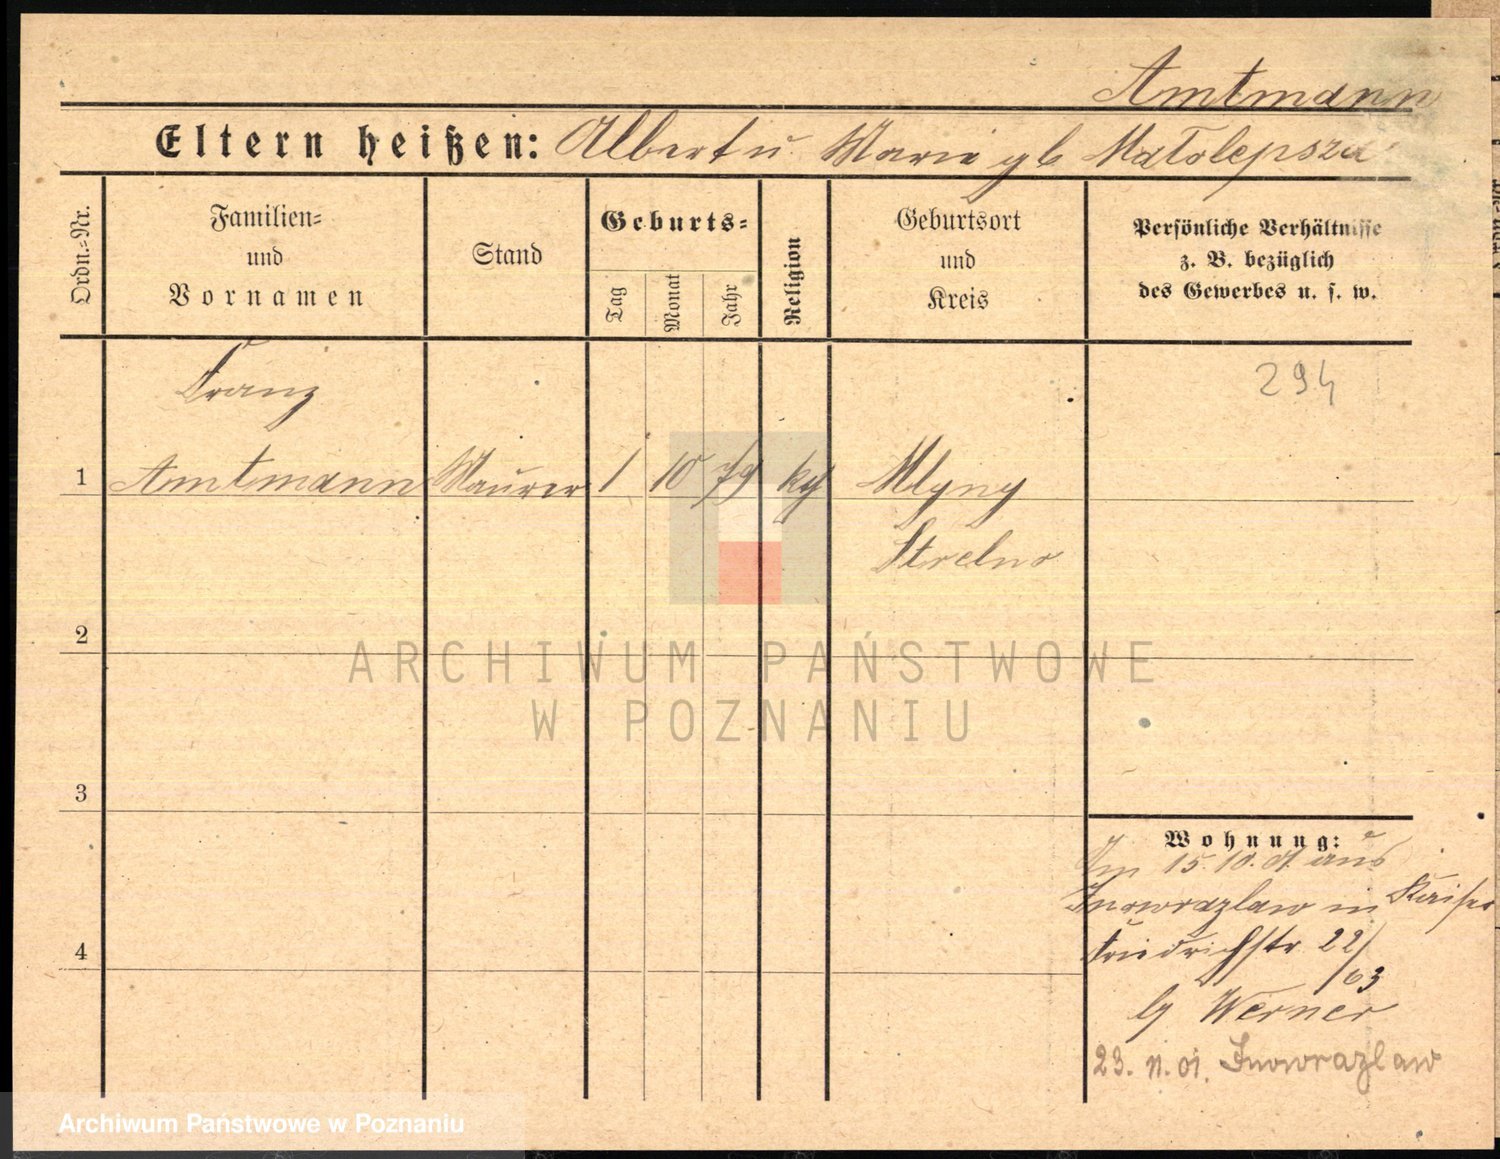 Amtmann
Eltern heißen: Albert u. Marie gb Małolepsza
Ordn.-Nr.
Familien-
und
Vornamen
Stand
Geburts-
Tag
Monat
Jahr
Religion
Geburtsort
und
Kreis
Persönliche Verhältnisse
z. B. bezüglich
des Gewerbes u. s. w.
294
Franz
1 Amtmann Maurer 1 10 79 Mlyny
Strelno
2
3
4
Wohnung:
15.10. aus
Inowrazlaw in Kaiser
Friedrichstr 22/
63
Werner
23. 11. 01. Inowrazlaw
ARCHIWUM PAŃSTWOWE
W POZNANIU
Archiwum Państwowe w Poznaniu